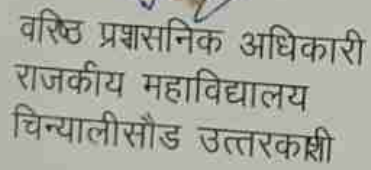 वरिष्ठ प्रशासनिक अधिकारी
राजकीय महाविद्यालय
चिन्यालीसौड उत्तरकाशी